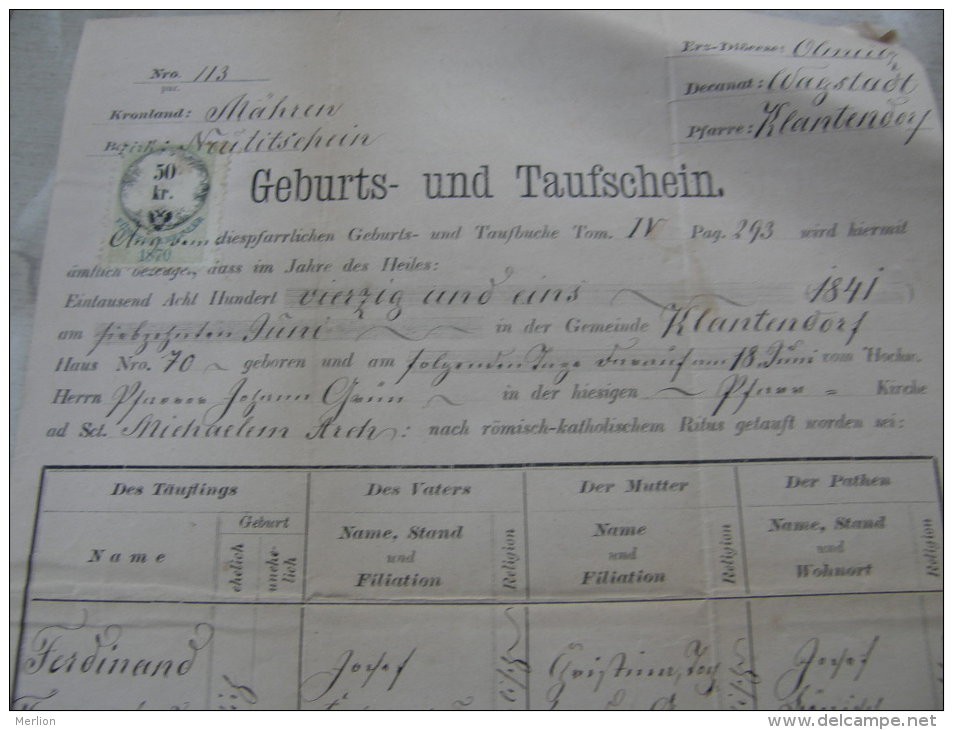 Nro. 113
par.
Kronland: Mähren
Bezirk: Neutitschein
Erz-Diöcese: Olmütz
Decanat: Wagstadt
Pfarre: Klantendorf
50
kr.
1870
Geburts- und Taufschein.
Aus dem diespfarrlichen Geburts- und Taufbuche Tom. IV Pag. 293 wird hiermit
ämtlich bezeuget, dass im Jahre des Heiles:
Eintausend Acht Hundert vierzig und eins 1841
am siebzehnten Juni in der Gemeinde Klantendorf
Haus Nro. 70 geboren und am folgenden Tage darauf am 18. Juni vom Hochw.
Herrn Pfarrer Johann Grün in der hiesigen Pfarr = Kirche
ad Sct. Michaelem Arch: nach römisch-katholischem Ritus getauft worden sei:
Des Täuflings Des Vaters Der Mutter Der Pathen
Name
Geburt
ehelich
unehe-
lich
Name, Stand
und
Filiation
Religion
Name
und
Filiation
Religion
Name, Stand
und
Wohnort
Religion
Ferdinand Josef Josef
Merlion
www.delcampe.net